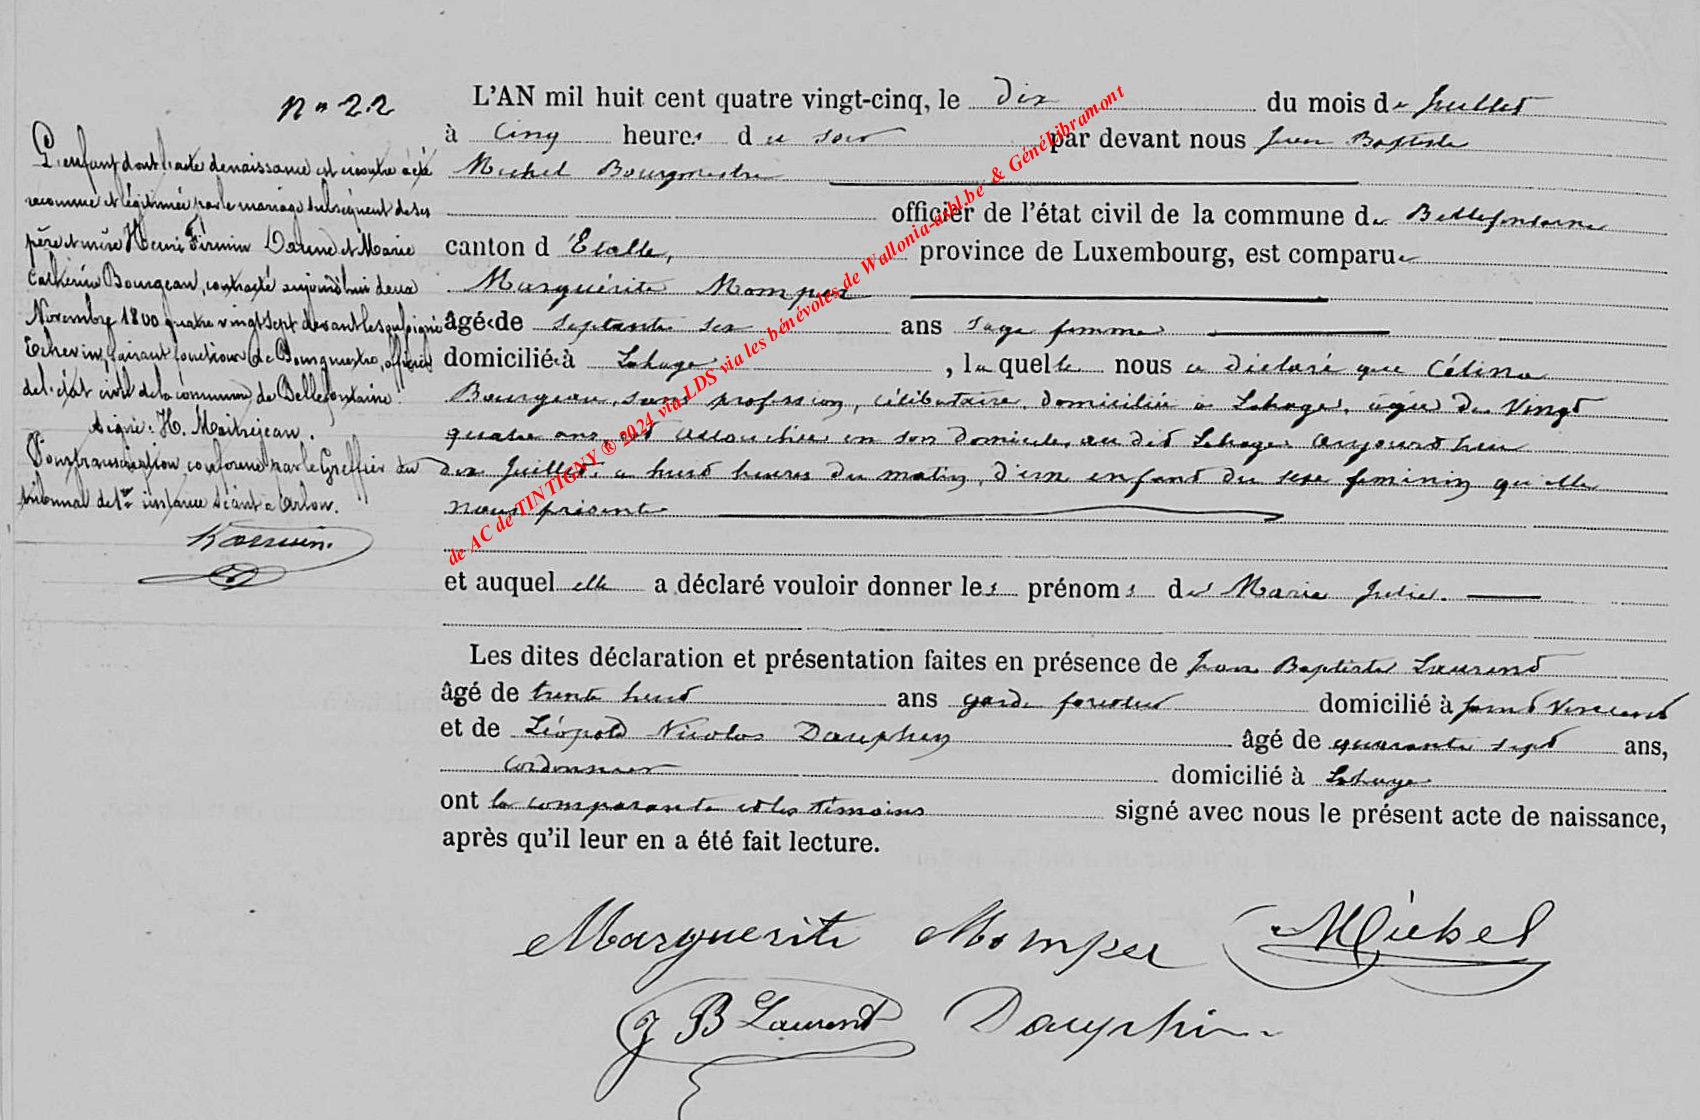 n° 22
L'enfant dont l'acte de naissance est ci contre a été
reconnue et légitimée par le mariage subséquent de ses
père et mère Henri Firmin Darend et Marie
Catherine Bourgeau, contracté aujourd'hui deux
Novembre 1800 quatre vingt sept devant le soussigné
Echevin, faisant fonctions de Bourgmestre, officier
de l'état civil de la commune de Bellefontaine.
Signé: H. Maitrejean.
Pour transcription conforme par le Greffier du
tribunal de 1re instance séant à Arlon.
L'AN mil huit cent quatre vingt-cinq, le dix du mois de Juillet
à cinq heures du soir par devant nous Jean Baptiste
Michel Bourgmestre
officier de l'état civil de la commune de Bellefontaine
canton d'Etalle, province de Luxembourg, est comparue
Marguérite Momper
âgée de septante six ans sage femme
domiciliée à Lahage, laquelle nous a déclaré que Célina
Bourgeau, sans profession, célibataire, domiciliée à Lahage, âgée de vingt
quatre ans, est accouchée en son domicile, au dit Lahage aujourd'hui
dix Juillet, à huit heures du matin, d'un enfant du sexe féminin qu'elle
nous présente
et auquel elle a déclaré vouloir donner les prénoms de Marie Julie.
Les dites déclaration et présentation faites en présence de Jean Baptiste Laurent
âgé de trente huit ans garde forestier domicilié à saint Vincent
et de Léopold Nicolas Dauphin âgé de quarante sept ans,
cordonnier domicilié à Lahage
ont la comparante et les témoins signé avec nous le présent acte de naissance,
après qu'il leur en a été fait lecture.
Marguerite Momper Michel
J B Laurent Dauphin
de AC de TINTIGNY ® 2024 via LDS via les bénévoles de Wallonia-asbl.be & Généalibramont